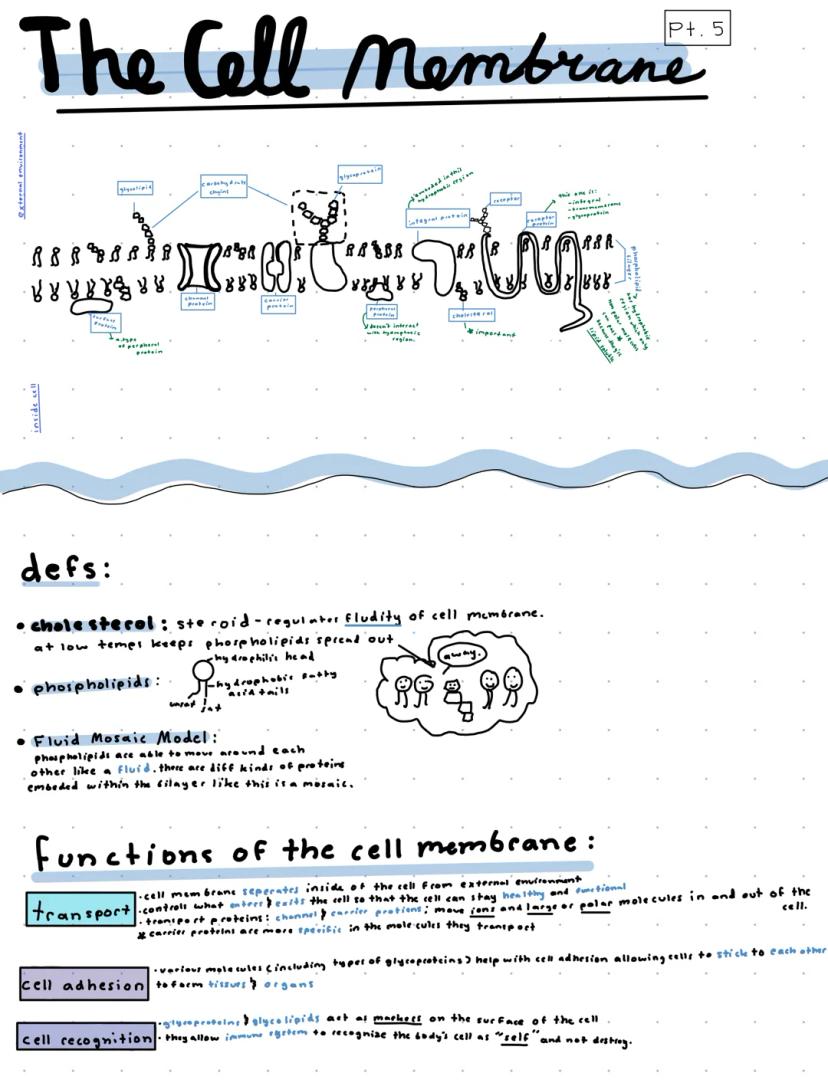 Pt. 5
The Cell Membrane
external environment
glycolipid
carbohydrate
chains
glycoprotein
embeded in this
hydrophobic region
integral protein
receptor
receptor
protein
this one is:
-integral
-transmembrane
-glycoprotein
phospholipid
bilayer
channel
protein
carrier
protein
surface
protein
a type
of peripheral
protein
peripheral
protein
doesn't interact
with hydrophobic
region.
cholesterol
* important
lipid soluble
inside cell
defs:
• cholesterol: steroid-regulates fludity of cell membrane.
at low temps keeps phospholipids spread out
away.
• phospholipids:
hydrophilic head
hydrophobic fatty
acid tails
unsat
sat
• Fluid Mosaic Model:
phospholipids are able to move around each
other like a fluid. there are diff kinds of proteins
embeded within the bilayer like this is a mosaic.
functions of the cell membrane:
transport
• cell membrane seperates inside of the cell from external environment
• controls what enters & exits the cell so that the cell can stay healthy and functional
• transport proteins: channel & carrier protiens; move ions and large or polar molecules in and out of the
cell.
* carrier proteins are more specific in the molecules they transport
cell adhesion
• various molecules (including types of glycoproteins) help with cell adhesion allowing cells to stick to each other
to form tissues & organs
cell recognition
• glycoproteins & glycolipids act as markers on the surface of the cell
• they allow immune system to recognize the body's cell as "self" and not destroy.